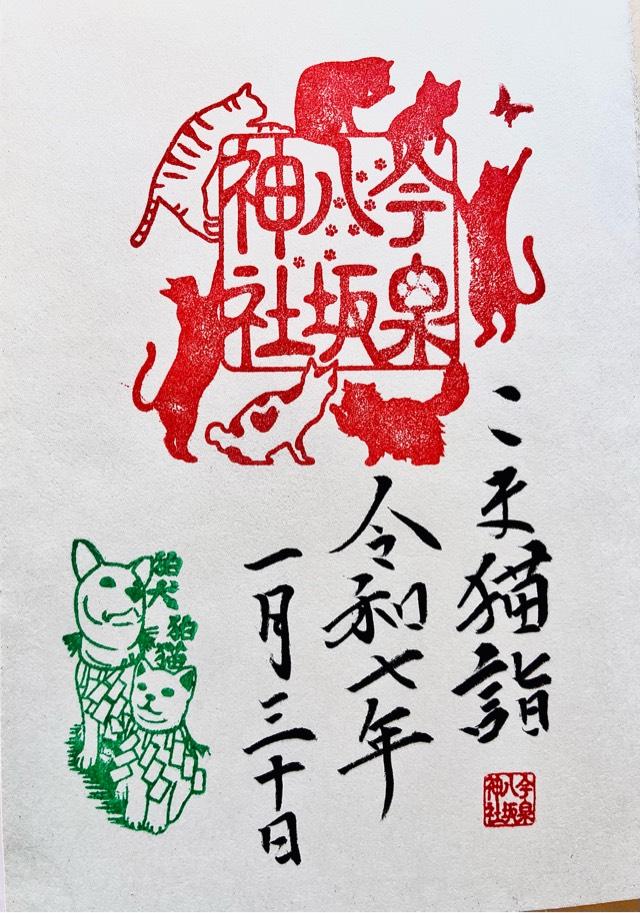 今泉
八坂
神社
こま猫詣
令和七年
一月三十日
今泉
八坂
神社
狛犬
狛猫